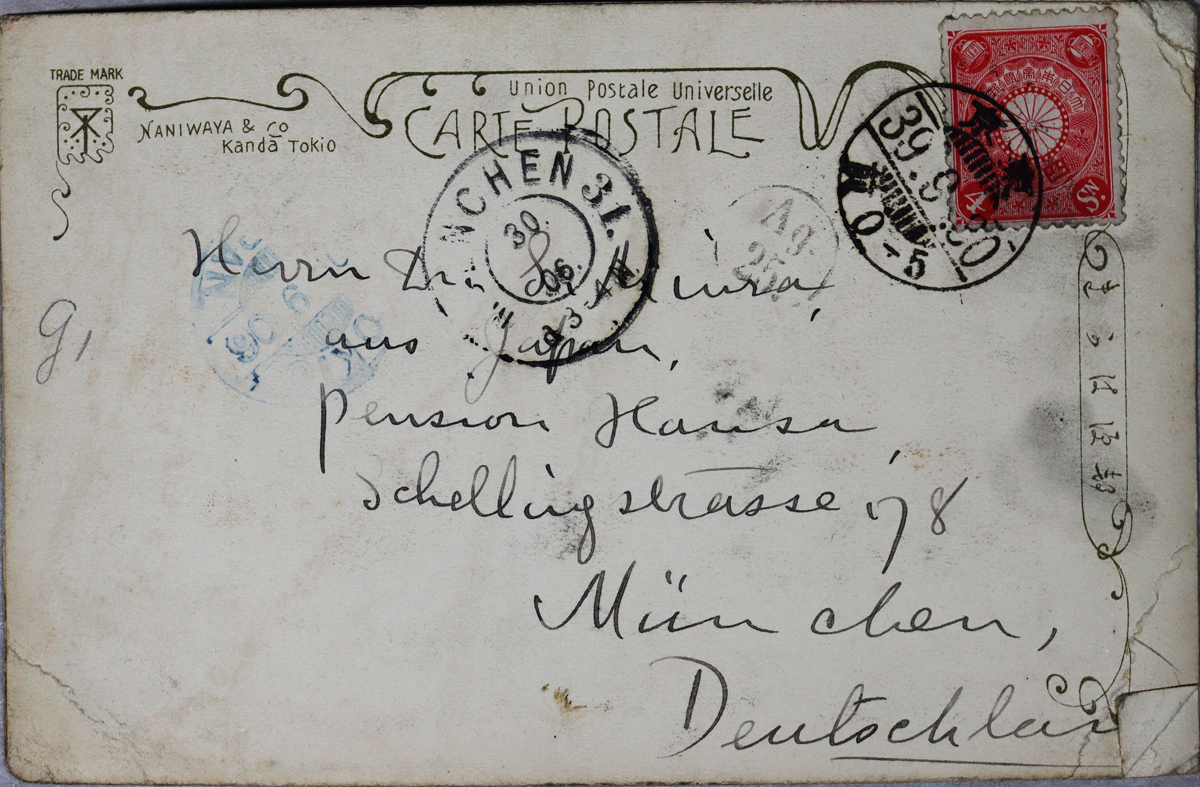 TRADE MARK
NANIWAYA & Co
Kanda Tokio
Union Postale Universelle
CARTE POSTALE
4 Sn.
39.
0-5
NCHEN 31.
30.
06.
Ag.
Herrn Dr. Miura
aus Japan,
Pension Hansa,
Schellingstrasse, 78
München,
Deutschlan
g,